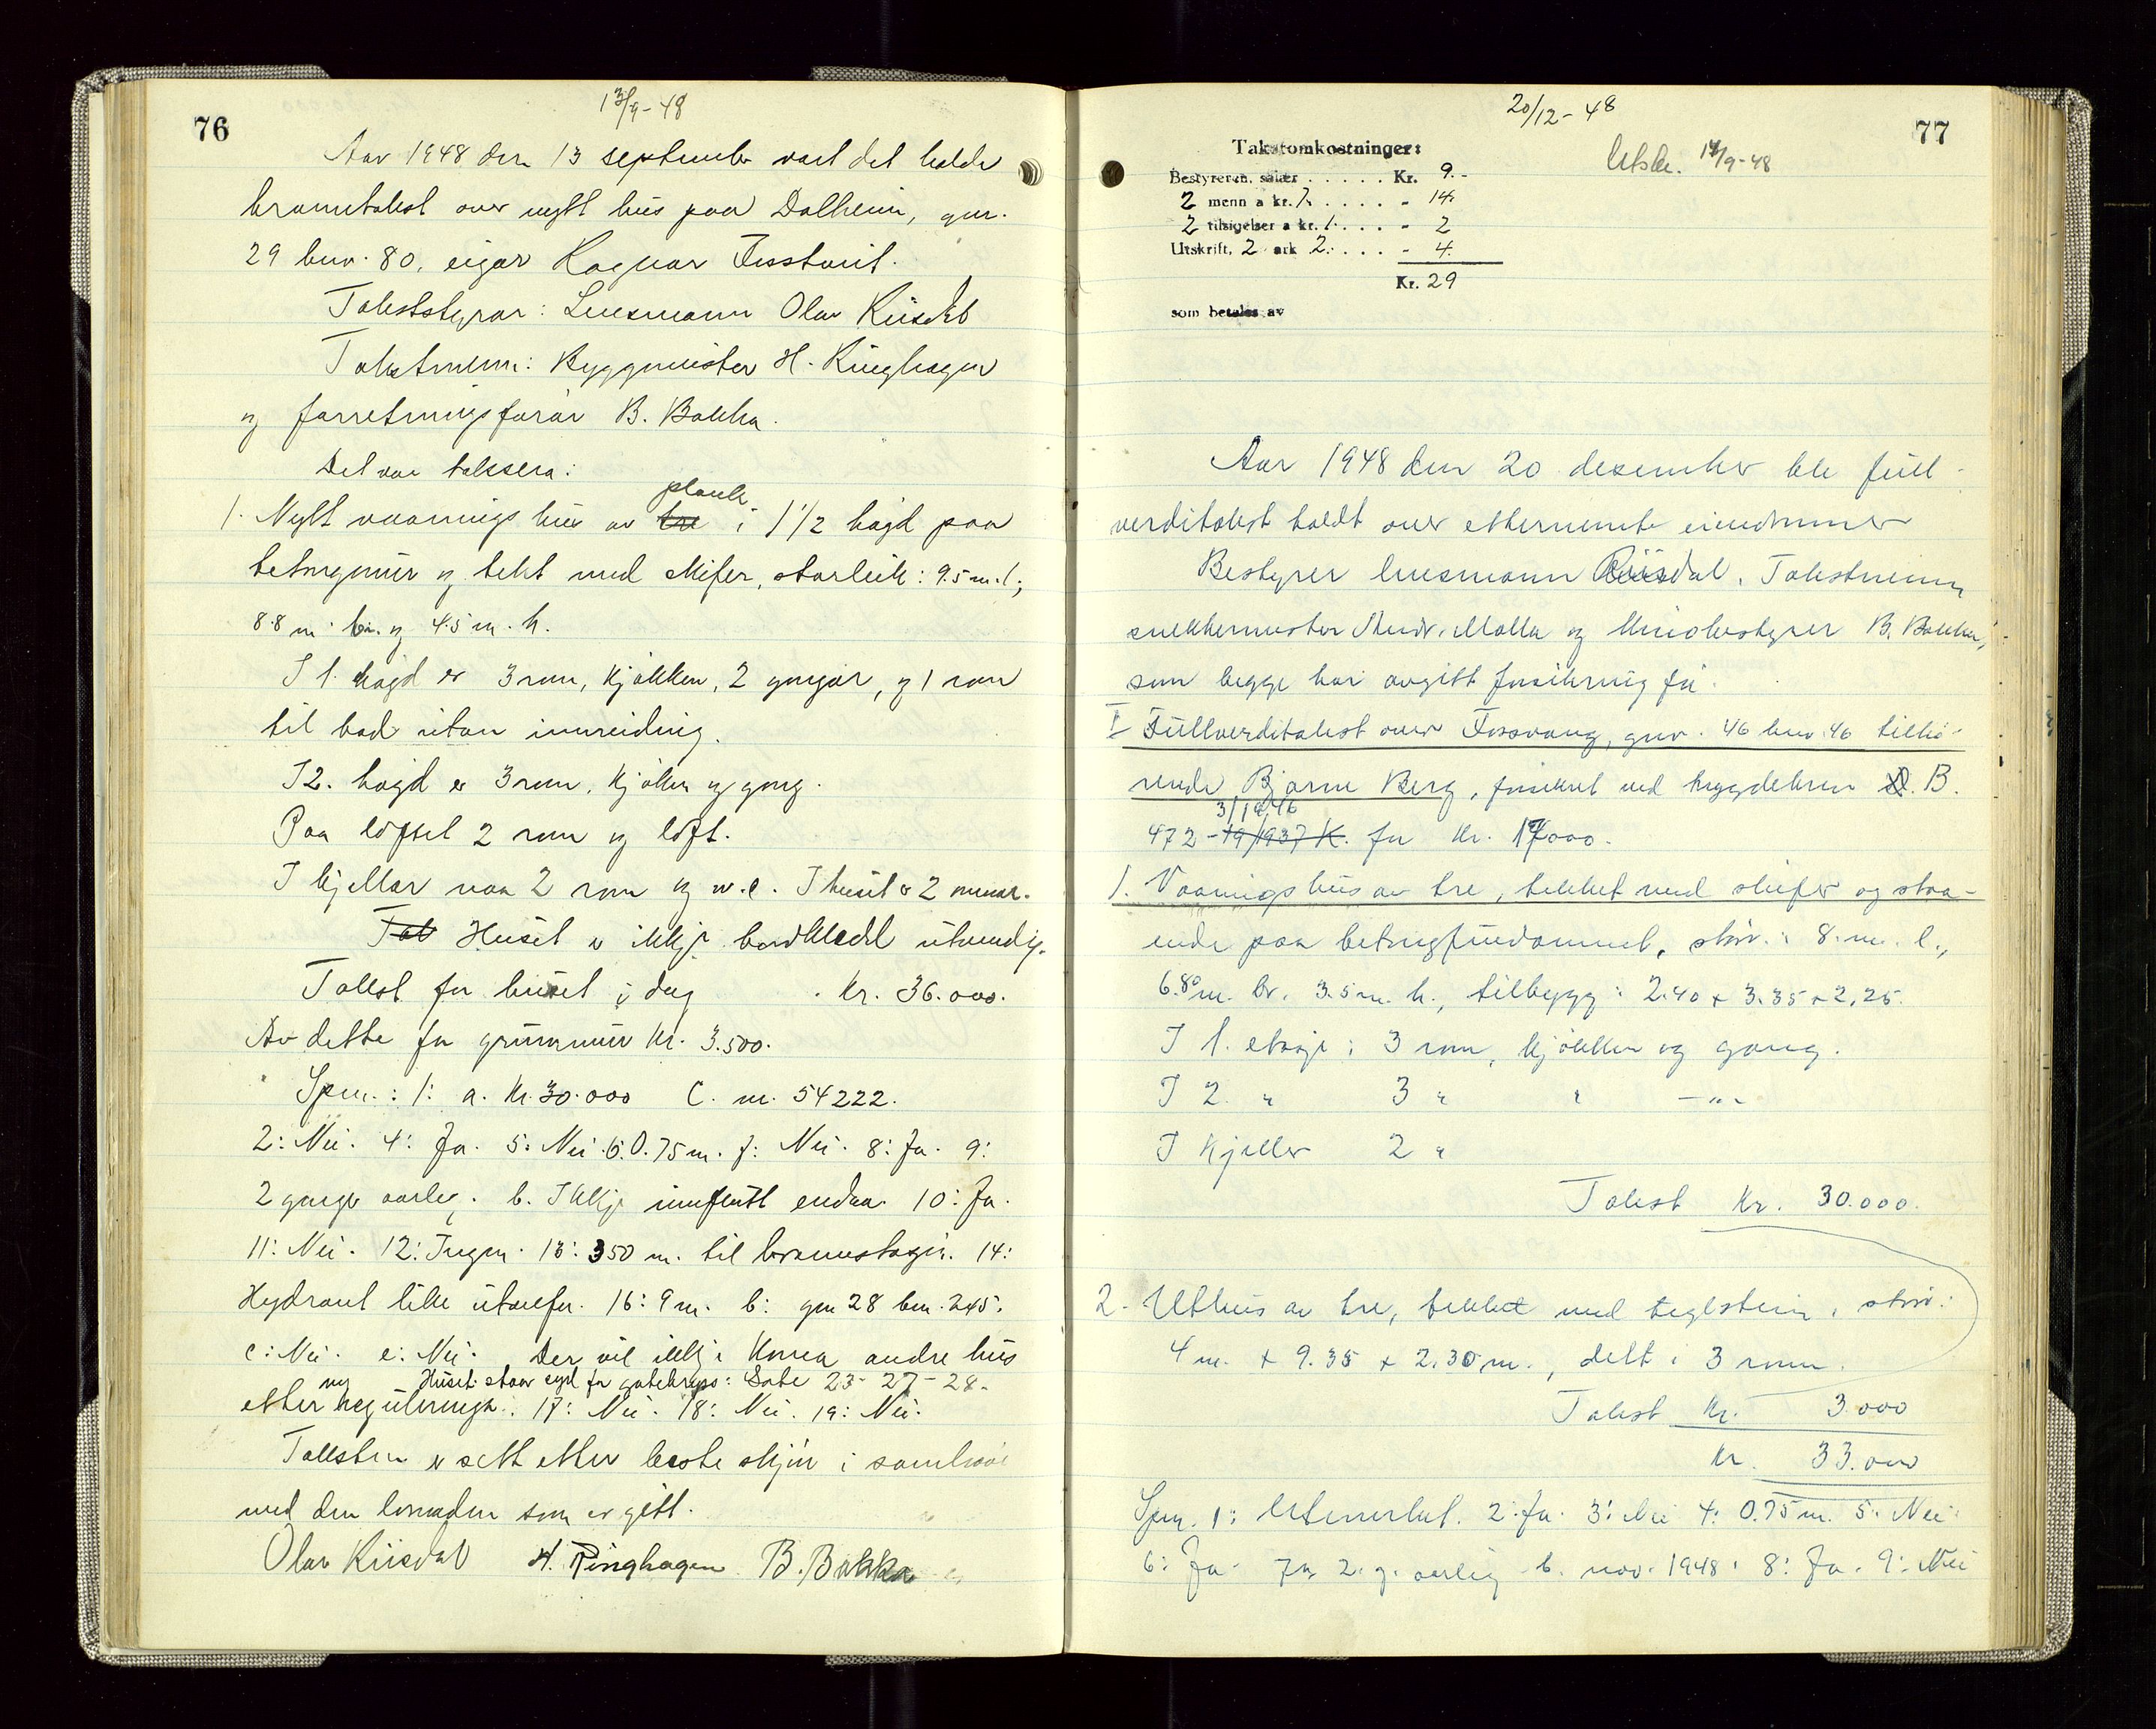 76
13/9-48
Aar 1948 den 13 september vart det halde
branntakst over nytt hus paa Dalheim, gnr.
29 bnr. 80, eigar Ragnar Fosstveit.
Takststyrar: Lensmann Olav Riisdal
Takstmenn: Byggmeister H. Ringhagen
og forretningsførar B. Bakka.
Det var taksera:
plank
1. Nytt vaanings hus av tre i 1 1/2 høgd paa
betongmur og tekt med skifer, storleik: 9.5 m. l.,
8.8 m. br. og 4.5 m. h.
I 1. høgd er 3 rom, kjøkken, 2 gangar, og 1 rom
til bad utan innreiding.
I 2. høgd er 3 rom, kjøken og gang.
Paa loftet 2 rom og loft.
I kjellar 2 rom og w.c. I huset er 2 murar.
Tak Huset er ikkje bordkledd utvendig.
Takst for huset i dag . kr. 36.000.
Av dette for grunnmur kr. 3.500.
Spm.: 1: a. kr. 30.000 C. nr. 54222.
2: Nei. 4: Ja. 5: Nei. 6: 0.75 m. 7: Nei. 8: Ja. 9:
2 gange aarleg. b. Ikkje innflutt endaa. 10: Ja.
11: Nei. 12: Ingen. 13: 350 m. til brannstasjon. 14:
Hydrant like utanfor. 16: 9 m. b: gnr 28 bnr. 245.
c: Nei. e: Nei. Der vil ikkje koma andre hus
ny Huset staar syd for gatekryss: Gate 23-27-28.
etter regulering. 17: Nei. 18: Nei. 19: Nei.
Taksten er sett etter beste skjøn i samhøve
med den lovnaden som er gitt.
Olav Riisdal H. Ringhagen B. Bakka
77
20/12-48
Utskr. 14/9-48
Takstomkostninger:
Bestyreren, salær . . . . . Kr. 9.-
2 menn a kr. 7. . . . . - 14.
2 tilsigelser a kr. 1. . . . - 2
Utskrift, 2 ark 2. . . . . - 4.
Kr. 29
som betales av
Aar 1948 den 20 desember ble full-
verditakst holdt over etternemnte eiendommer
Bestyrer lensmann Riisdal. Takstmenn
snekkermester Andr. Molla og kinobestyrer B. Bakka,
som begge har avgitt forsikring før.
I Fullverditakst over Fossvang, gnr. 46 bnr. 46 tilhø-
rende Bjarne Berg, forsikret ved bygdebrev D. B.
3/10 46
472 - 19/1937 K. for kr. 17000.
1. Vaanings hus av tre, tekket med skifer og staa-
ende paa betongfundament, stør.: 8. m. l.,
6.80 m. br. 3.5 m. h., tilbygg: 2.40 x 3.35 x 2.25.
I 1. etasje: 3 rom, kjøkken og gang.
I 2. " 3 " " - " -
I kjeller 2 "
Takst kr. 30.000.
2. Uthus av tre, tekket med teglstein, stør.:
4 m. x 9.35 x 2.30 m., delt i 3 rom.
Takst kr. 3.000
kr. 33.000
Spm. 1: Utenerket. 2: Ja. 3: Nei 4: 0.75 m. 5: Nei
6: Ja. 7a 2. g. aarlig b. nov. 1948. 8: Ja. 9: Nei